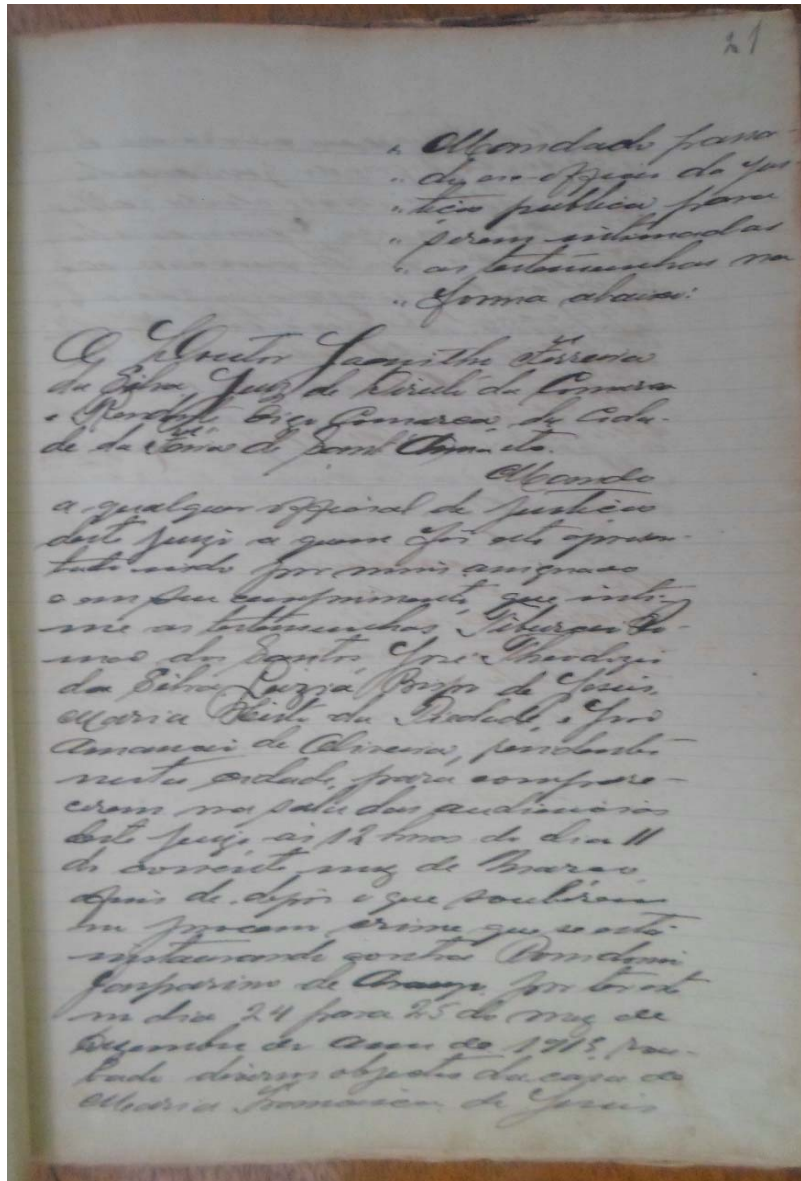 21
" Mandado passa-
" do ao officiais de jus
" tiça publica para
" serem intimadas
" as testemunhas na
" forma abaixo:
O Doutor Jacintho Ferreira
da Silva, Juiz de Direito da Comarca
de da Feira de Sant'Anna etc.
Mando
a qualquer official de justiça
deste juizo a quem for este apresen-
tado indo por mim assignado
e em seu cumprimento, que inti-
me as testemunhas, Tiburcio
dos Santos, José Theodozio
da Silva, Luzia de Jesus,
Maria da Piedade, e José
de Oliveira, residentes
nesta cidade, para compare-
cerem na sala das audiencias
deste juizo ás 12 horas do dia 11
do corrente mez de Março
afim de depôr o que souberem
no processo crime que se está
instaurando contra
Gasparino de Araujo, por ter este
no dia 24 para 25 do mez de
Dezembro do anno de 1913, rou-
bado diversos objectos da casa de
Maria Francisca de Jesus